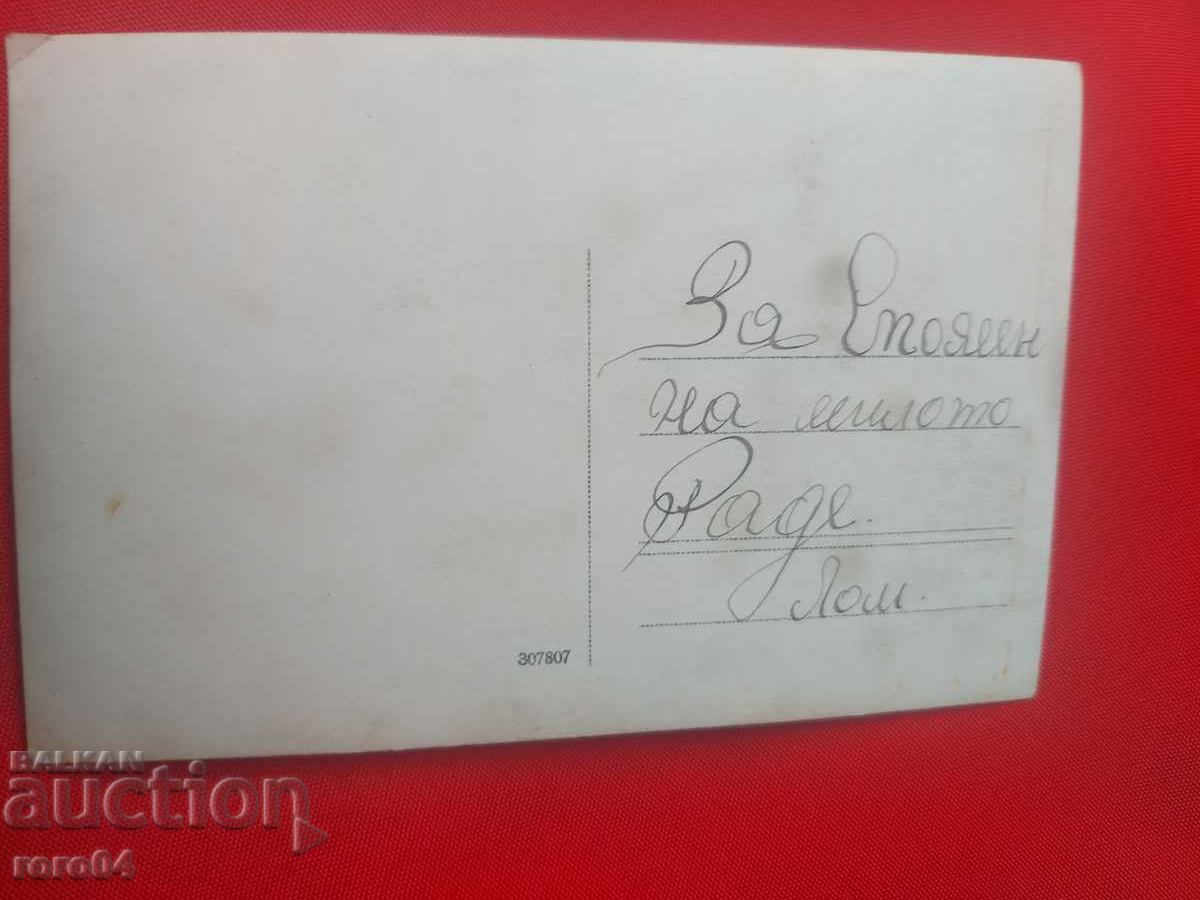 За Спомен
на милото
Раде.
Лом.
307807
BALKAN
auction
roro04